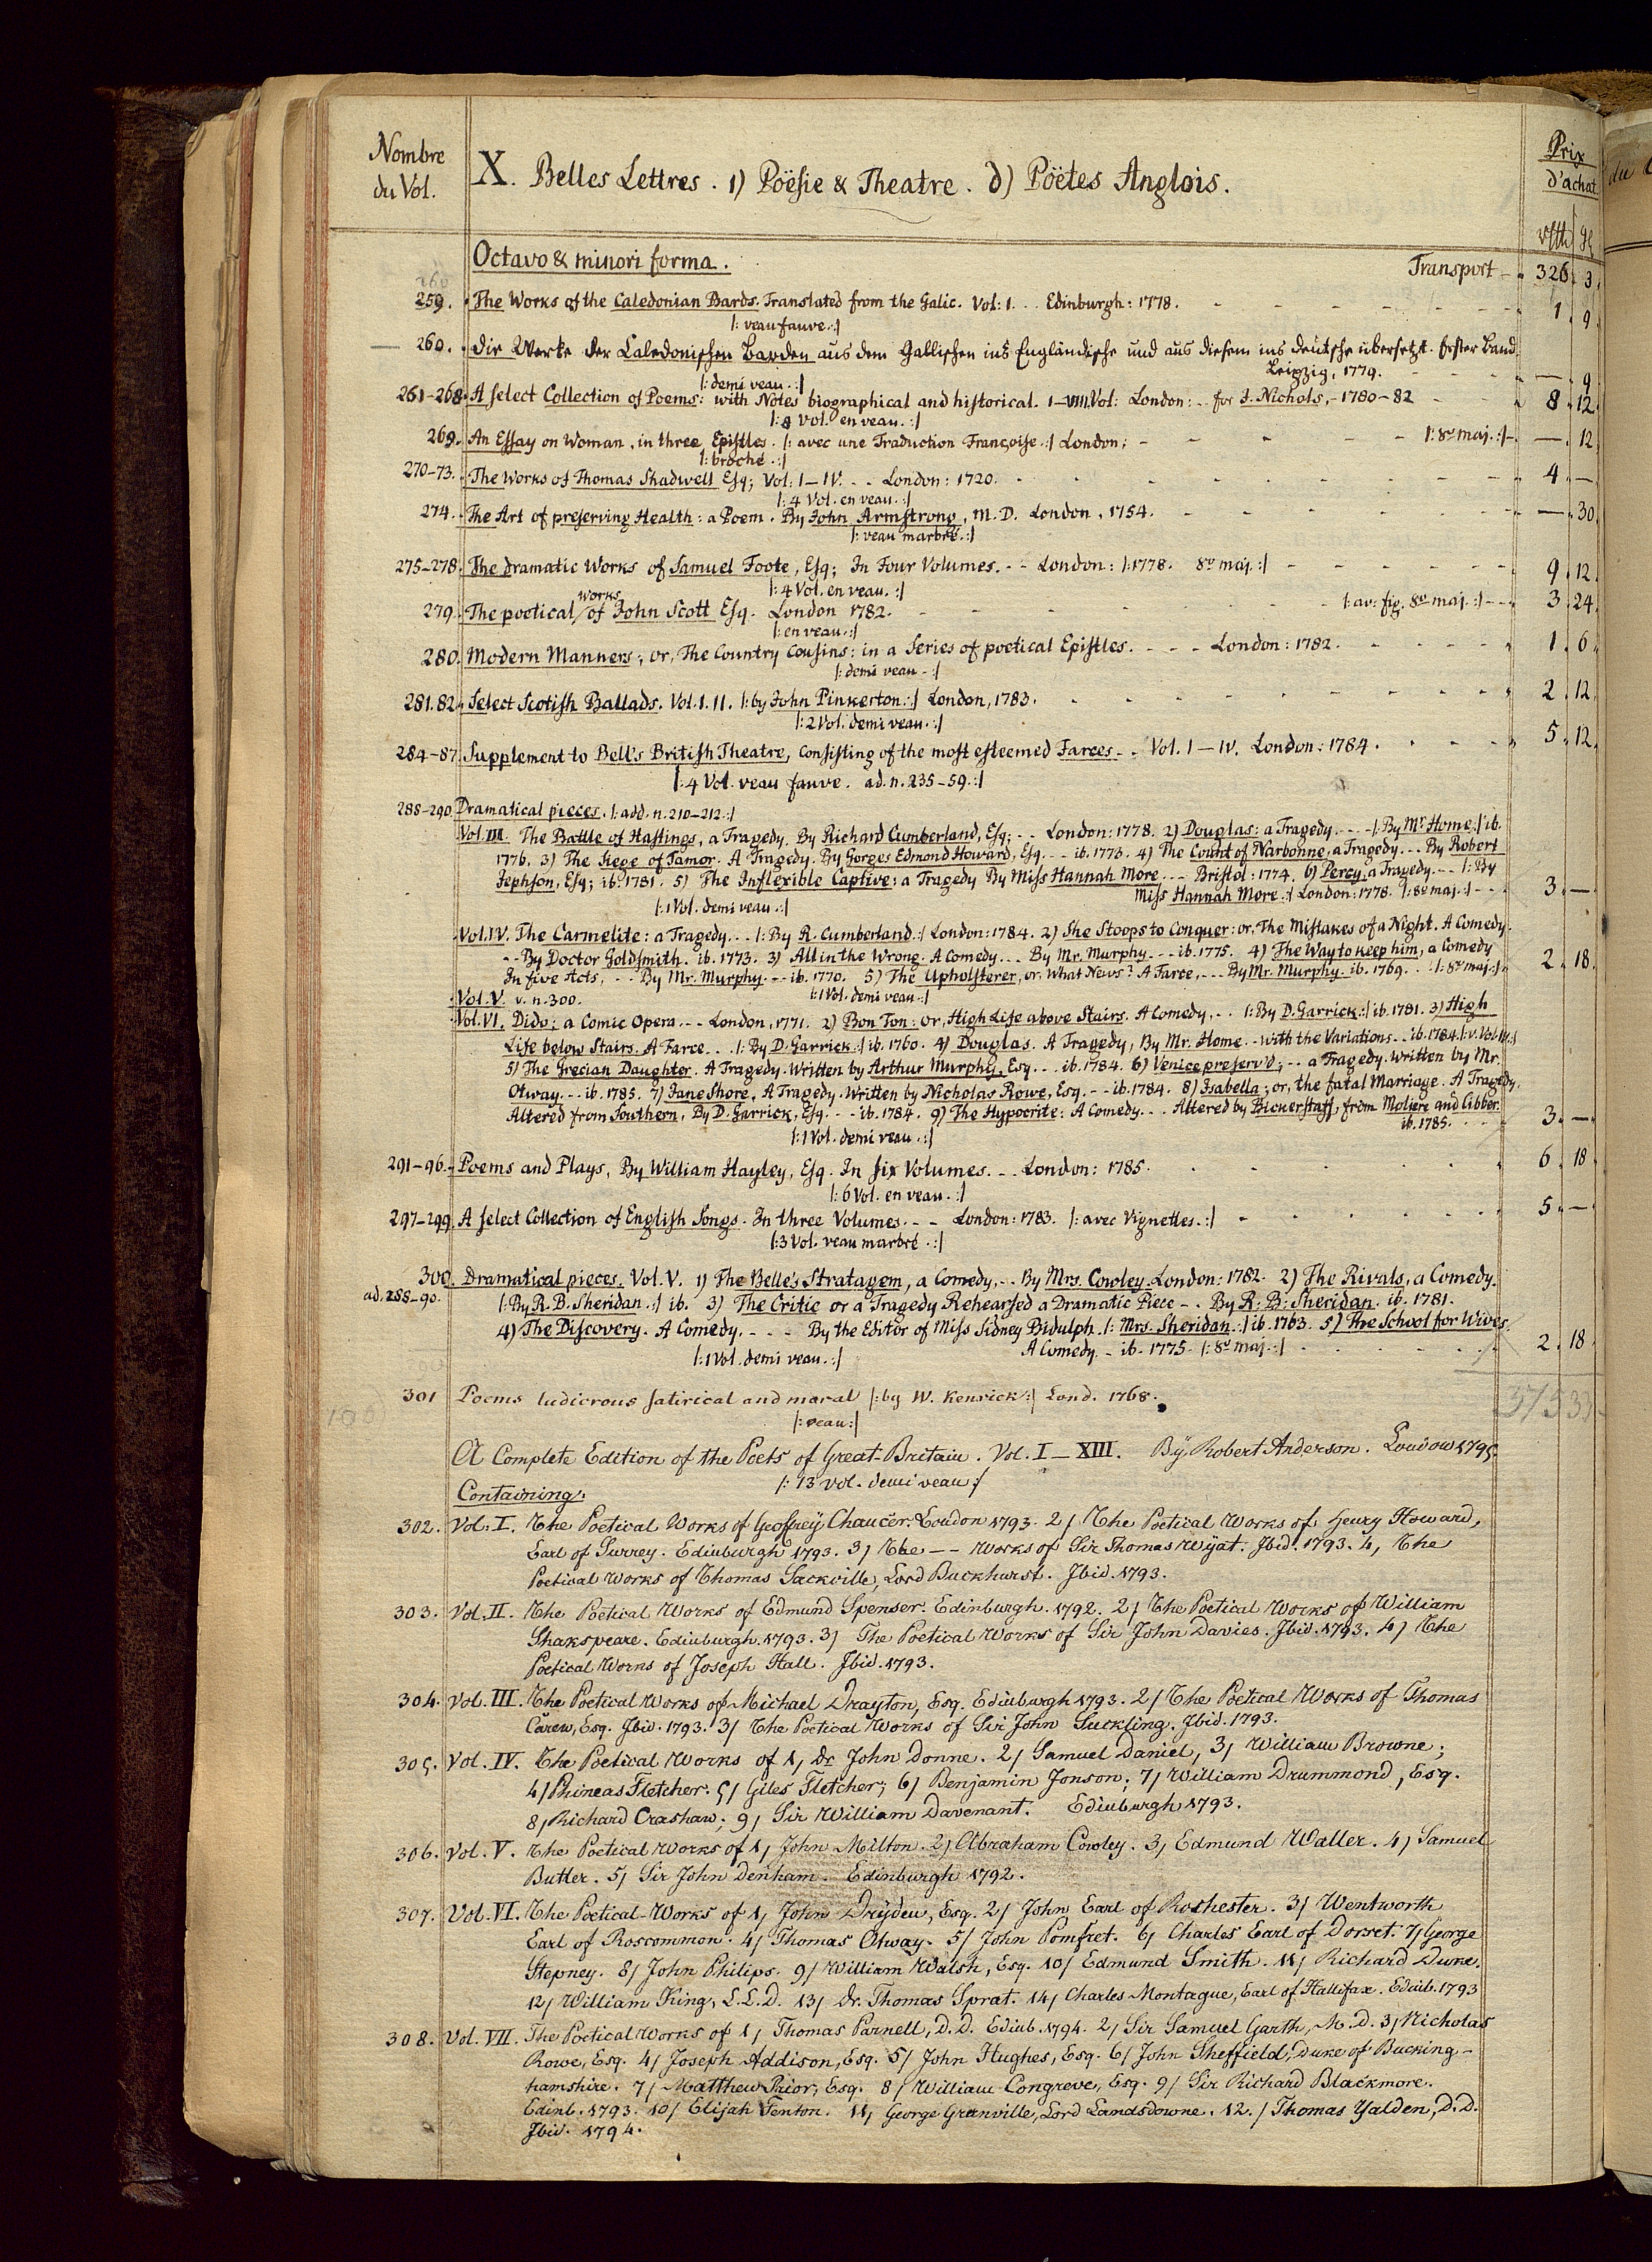 Nombre
du Vol.
X. Belles Lettres. 1) Pöësie & Theatre. d) Pöëtes Anglois.
Prix
d'achat
Octavo & minori forma.
Transport - 326. 3.
259. The Works of the Caledonian Bards. Translated from the Galic. Vol: 1. . . Edinburgh: 1778. 1. 9.
|: veau fauve. :|
260. Die Werke der Caledonischen Barden aus dem Gallischen ins Engländische und aus diesem ins deutsche übersetzt. Erster Band.
Leipzig, 1779. — 9.
|: demi veau. :|
261-268. A select Collection of Poems: with Notes biographical and historical. I-VIII. Vol: London: . . for J. Nichols, - 1780-82 8. 12.
|: 8 Vol. en veau. :|
269. An Essay on Woman, in three Epistles. |: avec une Traduction Françoise. :| London; |: 8º maj. :| — 12.
|: broché. :|
270-73. The Works of Thomas Shadwell Esq; Vol: I-IV. . . London: 1720. 4. —
|: 4 Vol. en veau. :|
274. The Art of preserving Health: a Poem. By John Armstrong, M.D. London, 1754. — 30.
|: veau marbré. :|
275-278. The dramatic Works of Samuel Foote, Esq; In Four Volumes. - - London: |: 1778. 8º maj. :| 9. 12.
|: 4 Vol. en veau. :|
works
279. The poetical of John Scott Esq. London 1782. |: av: fig. 8º maj. :| 3. 24.
|: en veau. :|
280. Modern Manners; or, The Country Cousins: in a Series of poetical Epistles. - - - London: 1782. 1. 6.
|: demi veau. :|
281.82. Select Scotish Ballads. Vol. I. II. |: by John Pinkerton. :| London, 1783. 2. 12.
|: 2 Vol. demi veau. :|
284-87. Supplement to Bell's British Theatre, Consisting of the most esteemed Farces - - Vol. I-IV. London: 1784. 5. 12.
|: 4 Vol. veau fauve. ad. n. 235-59. :|
288-290. Dramatical pieces. |: add. n. 210-212. :|
Vol. III. The Battle of Hastings, a Tragedy. By Richard Cumberland, Esq; - - London: 1778. 2) Douglas: a Tragedy. - - - |: By Mr Home. :| ib.
1776. 3) The Siege of Tamor. A Tragedy. By Gorges Edmond Howard, Esq. - - ib. 1773. 4) The Count of Narbonne, a Tragedy. - - By Robert
Jephson, Esq; ib. 1781. 5) The Inflexible Captive: a Tragedy By Miss Hannah More. - - Bristol: 1774. 6) Percy, a Tragedy. - - |: By
Miss Hannah More. :| London: 1778. |: 8º maj. :| - - 3. —
|: 1 Vol. demi veau. :|
Vol. IV. The Carmelite: a Tragedy. . . |: By R. Cumberland. :| London: 1784. 2) She Stoops to Conquer: or, The Mistakes of a Night. A Comedy.
- - By Doctor Goldsmith. ib. 1773. 3) All in the Wrong. A Comedy. . . By Mr. Murphy. - - ib. 1775. 4) The Way to keep him, a Comedy
In five Acts, - - By Mr. Murphy. - - ib. 1770. 5) The Upholsterer, or, What News? A Farce, - - - By Mr. Murphy. ib. 1769. . . |: 8º maj. :| 2. 18.
|: 1 Vol. demi veau. :|
Vol. V. v. n. 300.
Vol. VI. Dido: a Comic Opera. - - London, 1771. 2) Bon Ton: or, High Life above Stairs. A Comedy. . . |: By D. Garrick. :| ib. 1781. 3) High
Life below Stairs. A Farce. . . |: By D. Garrick. :| ib. 1760. 4) Douglas. A Tragedy, By Mr. Home. - with the Variations. - - ib. 1784. |: v. Vol. III. :|
5) The Grecian Daughter. A Tragedy. Written by Arthur Murphy, Esq. . . ib. 1784. 6) Venice preserv'd; - - a Tragedy. written by Mr.
Otway. - - ib. 1785. 7) Jane Shore, A Tragedy. Written by Nicholas Rowe, Esq. - - ib. 1784. 8) Isabella; or, the fatal Marriage. A Tragedy.
Altered from Southern, By D. Garrick, Esq. - - ib. 1784. 9) The Hypocrite: A Comedy. . . Altered by Bickerstaff, from Moliere and Cibber.
ib. 1785. 3. —
|: 1 Vol. demi veau. :|
291-96. Poems and Plays, By William Hayley, Esq. In six Volumes. - - London: 1785. 6. 18.
|: 6 Vol. en veau. :|
297-299. A select Collection of English Songs. In three Volumes. - - London: 1783. |: avec Vignettes. :| 5. —
|: 3 Vol. veau marbré. :|
300. Dramatical pieces. Vol. V. 1) The Belle's Stratagem, a Comedy, - - By Mrs. Cowley. London: 1782. 2) The Rivals, a Comedy.
ad. 288-90. |: By R. B. Sheridan. :| ib. 3) The Critic or a Tragedy Rehearsed a Dramatic Piece - - By R: B: Sheridan. ib. 1781.
4) The Discovery. A Comedy. - - - By the Editor of Miss Sidney Bidulph. |: Mrs. Sheridan. :| ib. 1763. 5) The School for Wives.
A Comedy. - ib. 1775. |: 8º maj. :| 2. 18.
|: 1 Vol. demi veau. :|
301 Poems ludicrous satirical and moral |: by W. Kenrick :| Lond. 1768.
|: veau :|
A Complete Edition of the Poets of Great-Britain. Vol. I-XIII. By Robert Anderson. London 1795
|: 13 vol. demi veau :|
Containing.
302. Vol. I. The Poetical Works of Geoffrey Chaucer. London 1793. 2) The Poetical Works of Henry Howard,
Earl of Surrey. Edinburgh 1793. 3) The - - Works of Sir Thomas Wyat. Ibid. 1793. 4) The
Poetical Works of Thomas Sackville, Lord Buckhurst. Ibid. 1793.
303. Vol. II. The Poetical Works of Edmund Spenser. Edinburgh. 1792. 2) The Poetical Works of William
Shakspeare. Edinburgh. 1793. 3) The Poetical Works of Sir John Davies. Ibid. 1793. 4) The
Poetical Works of Joseph Hall. Ibid. 1793.
304. Vol. III. The Poetical Works of Michael Drayton, Esq. Edinburgh 1793. 2) The Poetical Works of Thomas
Carew, Esq. Ibid. 1793. 3) The Poetical Works of Sir John Suckling. Ibid. 1793.
305. Vol. IV. The Poetical Works of 1) Dr John Donne. 2) Samuel Daniel, 3) William Browne;
4) Phineas Fletcher. 5) Giles Fletcher; 6) Benjamin Jonson; 7) William Drummond, Esq.
8) Richard Crashaw; 9) Sir William Davenant. Edinburgh 1793.
306. Vol. V. The Poetical Works of 1) John Milton. 2) Abraham Cowley. 3) Edmund Waller. 4) Samuel
Butler. 5) Sir John Denham. Edinburgh 1792.
307. Vol. VI. The Poetical-Works of 1) John Dryden, Esq. 2) John Earl of Rochester. 3) Wentworth
Earl of Roscommon. 4) Thomas Otway. 5) John Pomfret. 6) Charles Earl of Dorset. 7) George
Stepney. 8) John Philips. 9) William Walsh, Esq. 10) Edmund Smith. 11) Richard Duke.
12) William King, L.L.D. 13) Dr. Thomas Sprat. 14) Charles Montague, Earl of Hallifax. Edinb. 1793
308. Vol. VII. The Poetical Works of 1) Thomas Parnell, D.D. Edinb. 1794. 2) Sir Samuel Garth, M.D. 3) Nicholas
Rowe, Esq. 4) Joseph Addison, Esq. 5) John Hughes, Esq. 6) John Sheffield, Duke of Bucking-
hamshire. 7) Matthew Prior, Esq. 8) William Congreve, Esq. 9) Sir Richard Blackmore.
Edinb. 1793. 10) Elijah Fenton. 11) George Granville, Lord Landsdowne. 12.) Thomas Yalden, D.D.
Ibid. 1794.